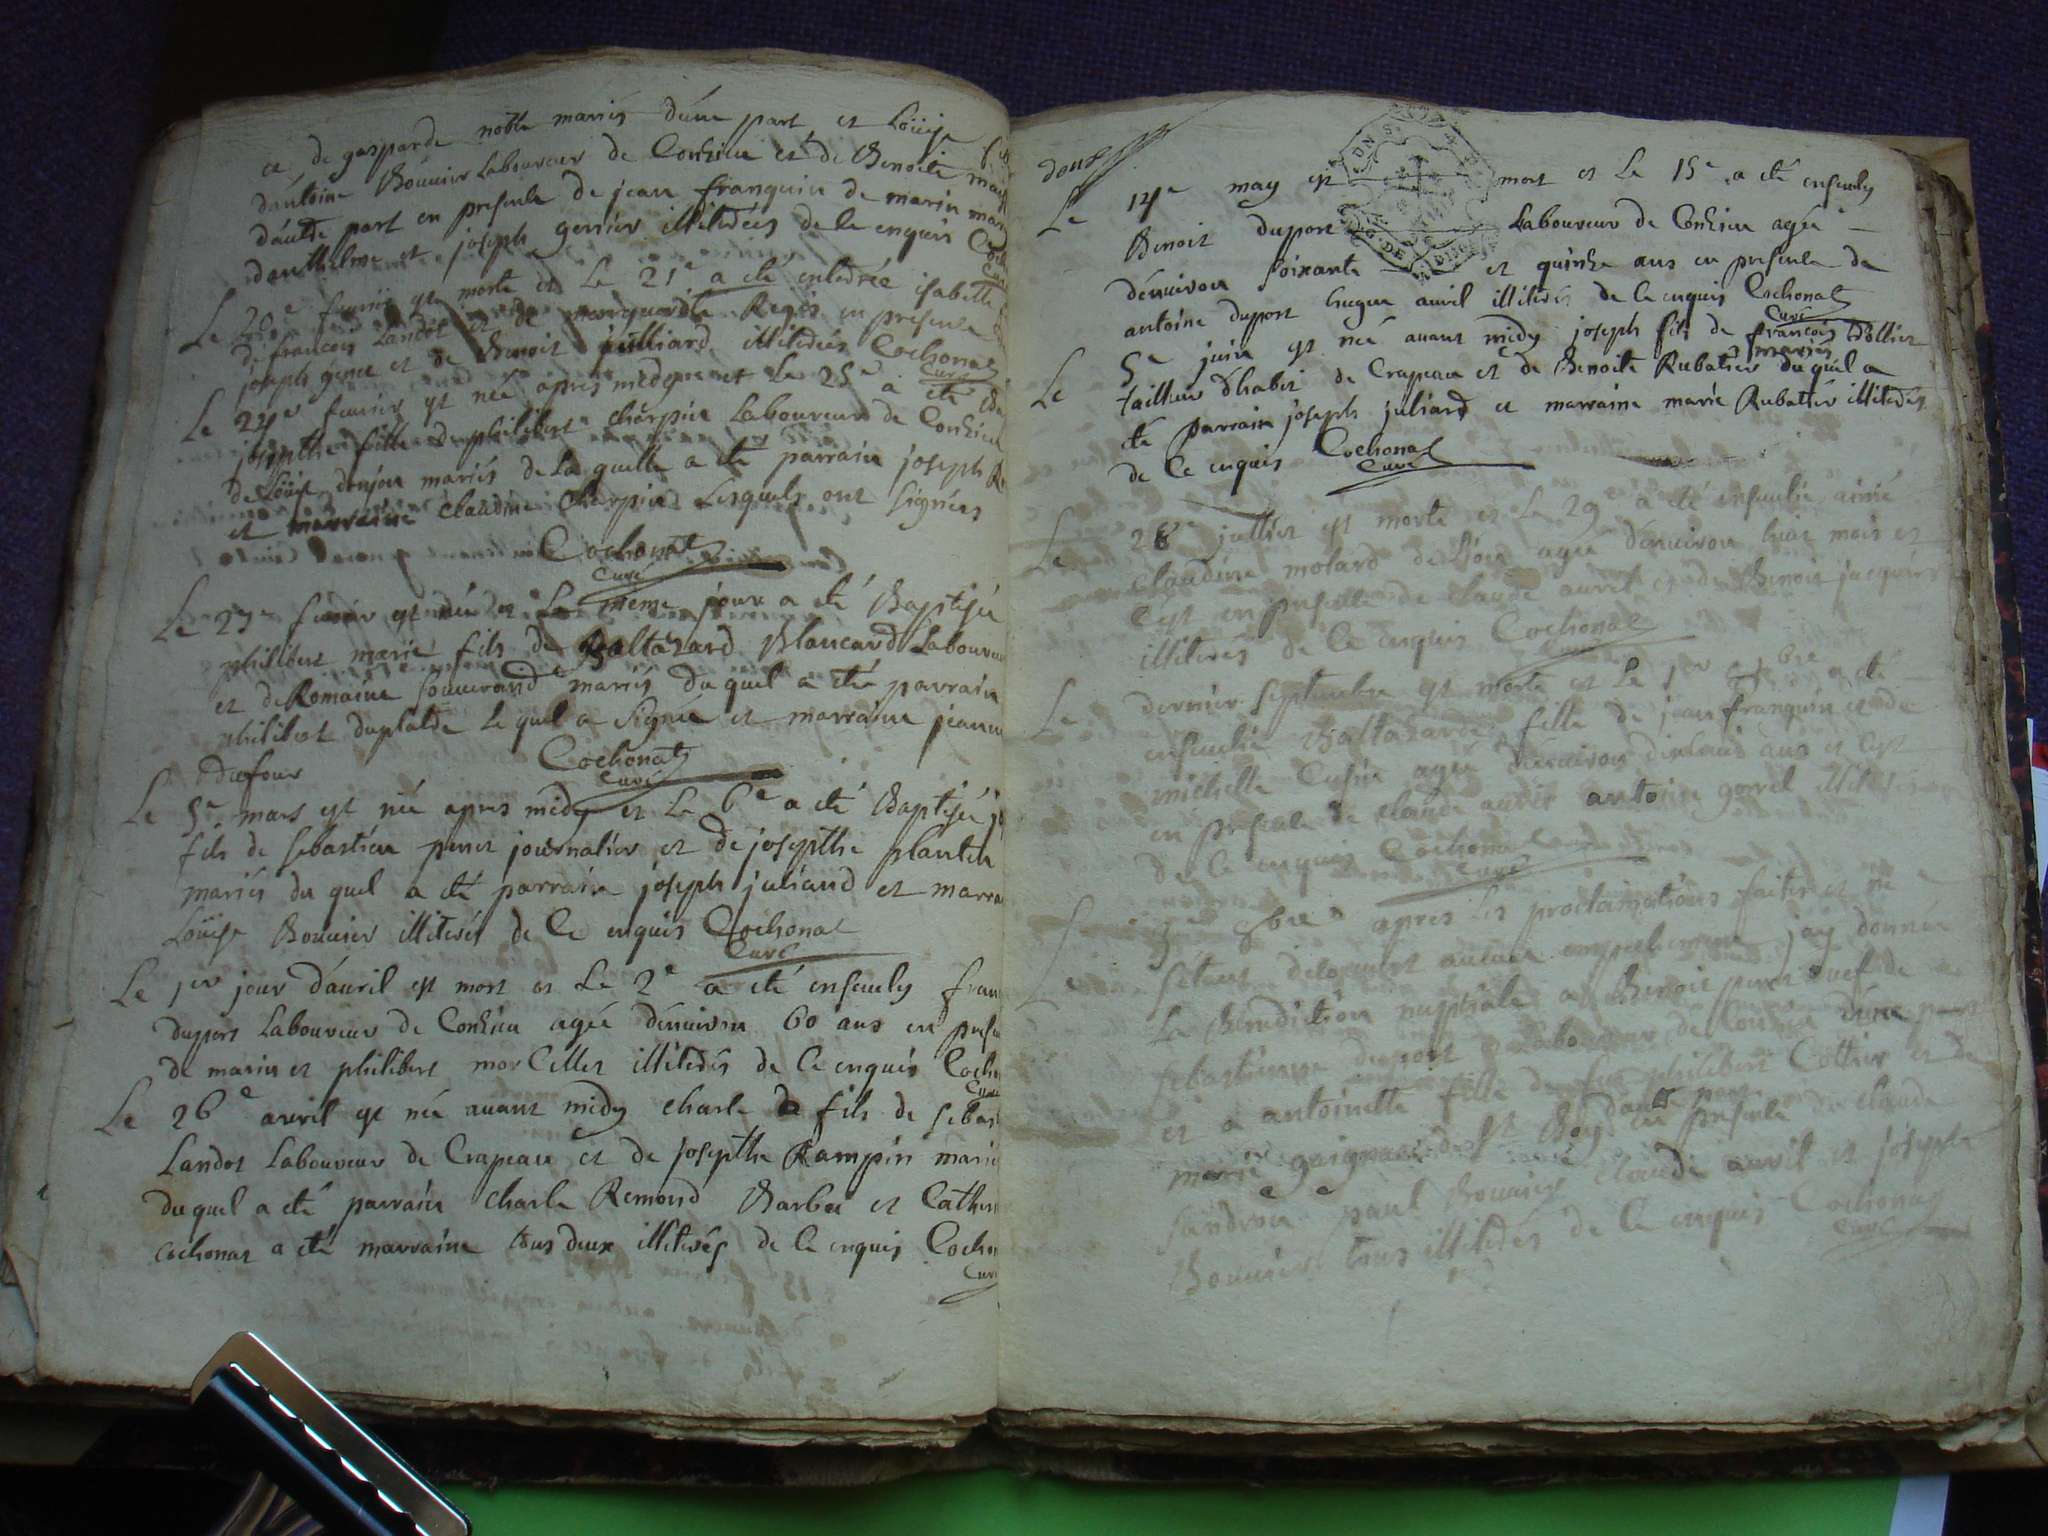 et de gasparde noble mariés d'une part et Loüise
d'antoine Bouvier Laboureur de Conzieu et de Benoite
d'autre part en presence de jean franquin de marin
danthelme et joseph gervier illiterés de ce enquis
Le 20e fevrier est morte et Le 21e a été enterrée isabelle
de francois Landot et de marguerite Regis en presence
joseph genee et de Benoit julliard illiterés Cochonat
Curé
Le 24e fevrier est née apres midy et Le 25e a été
josepthe fille de philibert cherpin Laboureur de Conzieu
de Loüise donjou mariés de Laquelle a été parrain joseph
et marraine claudine cherpin Lesquels ont signés
Cochonat
Curé
Le 27e fevrier est née et Le meme jour a été Baptisée
philibert marie fils de Baltazard Blancard Laboureur
et de Romaine souverand mariés duquel a été parrain
philibert duplatde Lequel a signé et marraine jeanne
dufour Cochonat
Curé
Le 5e mars est née apres midy et Le 6e a été Baptisée
fils de sebastien penet journalier et de josepthe plantin
mariés du quel a été parrain joseph juliand et marraine
Loüise Bouvier illiterés de ce enquis Cochonat
Curé
Le 1er jour d'avril est mort et Le 2e a été ensevely
duport Laboureur de Conzieu agée d'environ 60 ans en
de marin et philibert morCellet illiterés de Ce enquis
Curé
Le 26e avril est née avant midy charle fils de
Landot Laboureur de Crapeau et de josepthe Rampin
duquel a été parrain charle Remond Barbee et
cochonat a été marraine tous deux illiterés de Ce enquis
Curé
douze
Le 14e may est mort et Le 15e a été ensevely
Benoit duport Laboureur de Conzieu agée
d'environ soixante et quinze ans en presence de
antoine duport hugue avril illiterés de Ce enquis Cochonat
Curé
Le 5e juin est née avant midy joseph fils de francois Dollier
tailleur d'habit de Crapeau et de Benoite Rubatier mariés duquel a
été parrain joseph juliard et marraine marie Rubatier illiterés
de Ce enquis Cochonat
Curé
Le 28e juillet est morte et Le 29e a été ensevelie aimé
claudine molard de Lion agée d'environ huit mois et
c'est en presence de claude avril et de Benoit jacquier
illiterés de Ce enquis Cochonat
Curé
Le dernier septembre est morte et Le 1er 8bre a été
ensevelie Baltazarde fille de jean franquin et de
michelle Cusin agée d'environ ans et c'est
en presence de claude avril antoine gorrel illiterés
de Ce enquis Cochonat
Curé
Le 3e 9bre apres Les proclamations faites et ne
s'étant decouvert aucun empechement j'ay donnée
La Benediction nuptiale a Benoit penet veuf de
sebastienne duport Laboureur de Conzieu d'une part
et a antoinette fille de feu philibert Cottier et de
marie gaignard de St Boy d'autre part en presence de claude
sandron paul Bouvier Claude avril et joseph
Bouvier tous illiterés de Ce enquis Cochonat
Curé